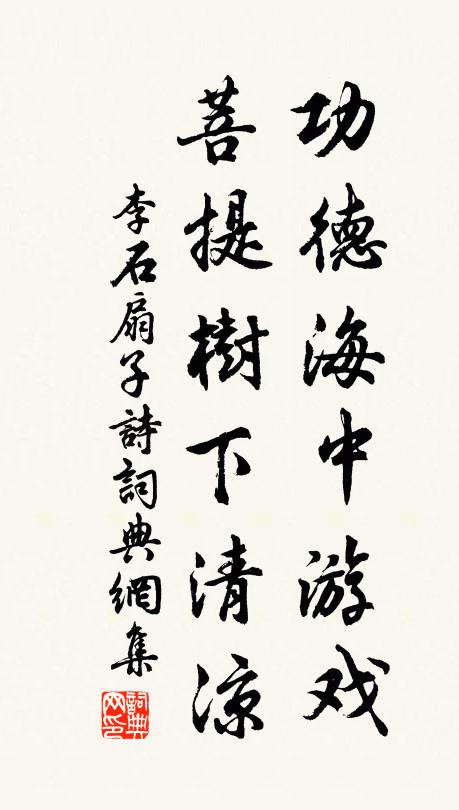 功德海中游戏
菩提樹下清涼
李石扇子詩詞典網集
詞典網印